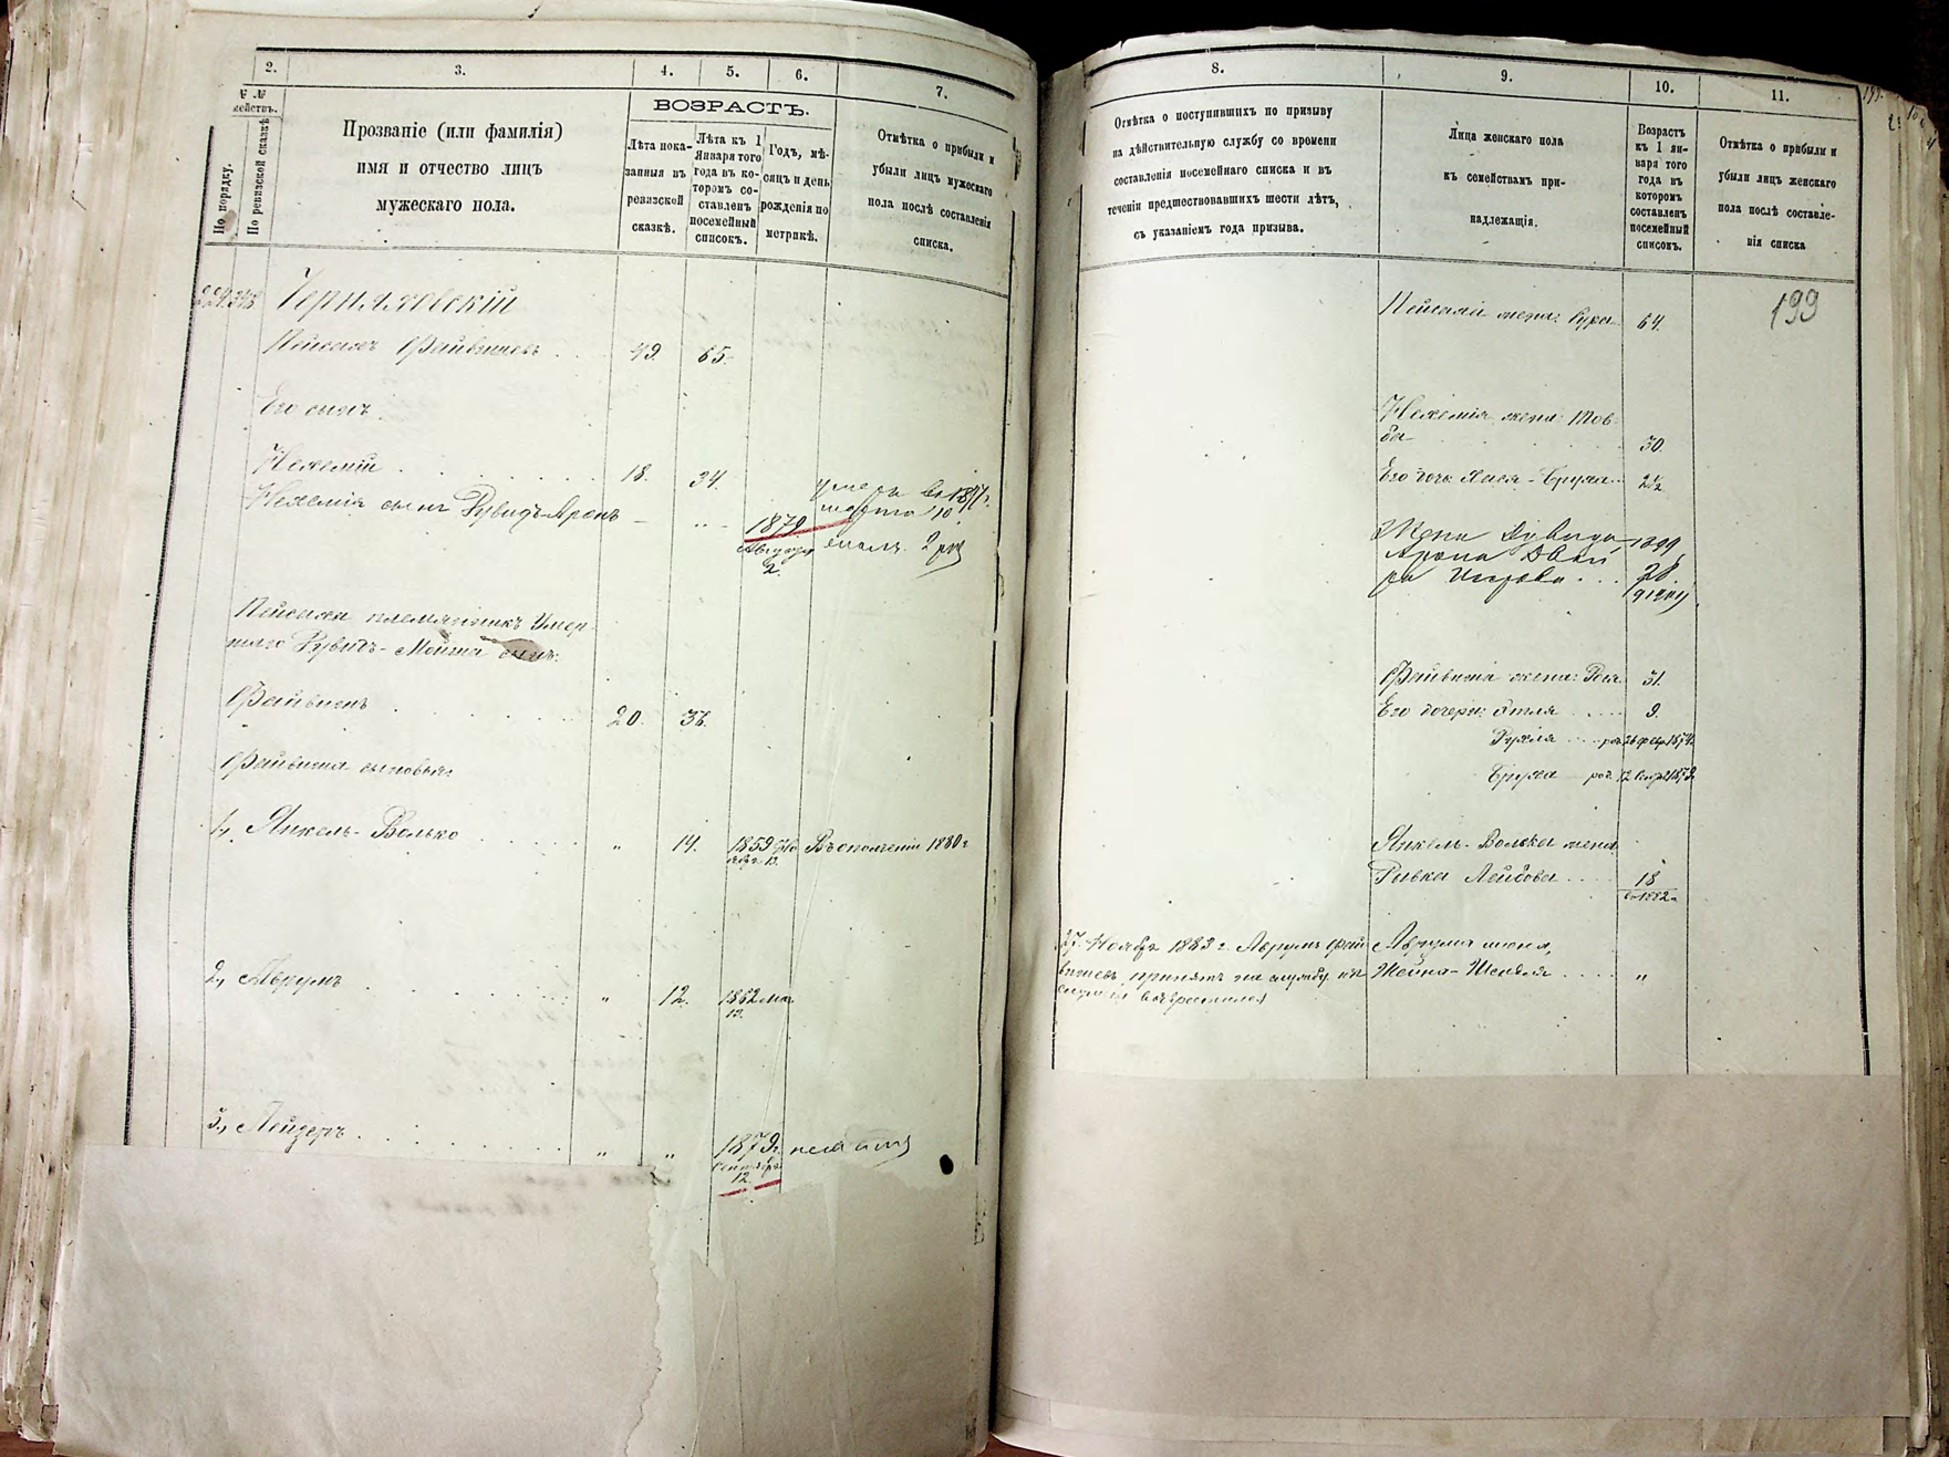 2.
3.
4.
5.
6.
7.
№ №
По порядку.
По ревизской сказкѣ
Прозваніе (или фамилія)
имя и отчество лицъ
мужескаго пола.
ВОЗРАСТЪ.
Лѣта пока-
занныя въ
ревизской
сказкѣ.
Лѣта къ 1
Января того
года въ ко-
торомъ со-
ставленъ
посемейный
списокъ.
Годъ, мѣ-
сяцъ и день
рожденія по
метрикѣ.
Отмѣтка о прибыли и
убыли лицъ мужескаго
пола послѣ составленія
списка.
Черняховскій
Пейсахъ Файвишевъ
49. 65.
Его сынъ
Нехемій
18. 34.
марта 10
Нехемія сынъ Дувидъ-Аронъ
1879
Августа
2.
Пейсаха племянникъ Умер-
шаго Дувидъ-Мойша сынъ:
Файвишъ
20. 36.
Файвиша сыновья:
1., Янкель-Волько
" 14. 1859 Въ ополченіи 1880 г
2., Аврумъ
" 12. 1862
12.
3., Лейзеръ
" " 1873 г.
Сентября
12.
8.
9.
10.
11.
Отмѣтка о поступившихъ по призыву
на дѣйствительную службу со времени
составленія посемейнаго списка и въ
теченіи предшествовавшихъ шести лѣтъ,
съ указаніемъ года призыва.
Лица женскаго пола
къ семействамъ при-
надлежащія.
Возрастъ
къ 1 ян-
варя того
года въ
которомъ
составленъ
посемейный
списокъ.
Отмѣтка о прибыли и
убыли лицъ женскаго
пола послѣ составле-
нія списка
199
Пейсаха жена: Сура 64.
Нехемія жена: Тов-
ба 30.
Его дочь Хася-Бруха 2½
Жена Дувида
Арона Двой
ра
28.
Файвиша жена: Рося 31.
Его дочери: Этля 9.
Рухля
Бруха род. 12
Янкель-Волька жена
Ривка Лейбова 18
27 Ноября 1883 г. Аврумъ Фай-
вишевъ принятъ на службу
Аврума жена,
Шейна-Шендля "